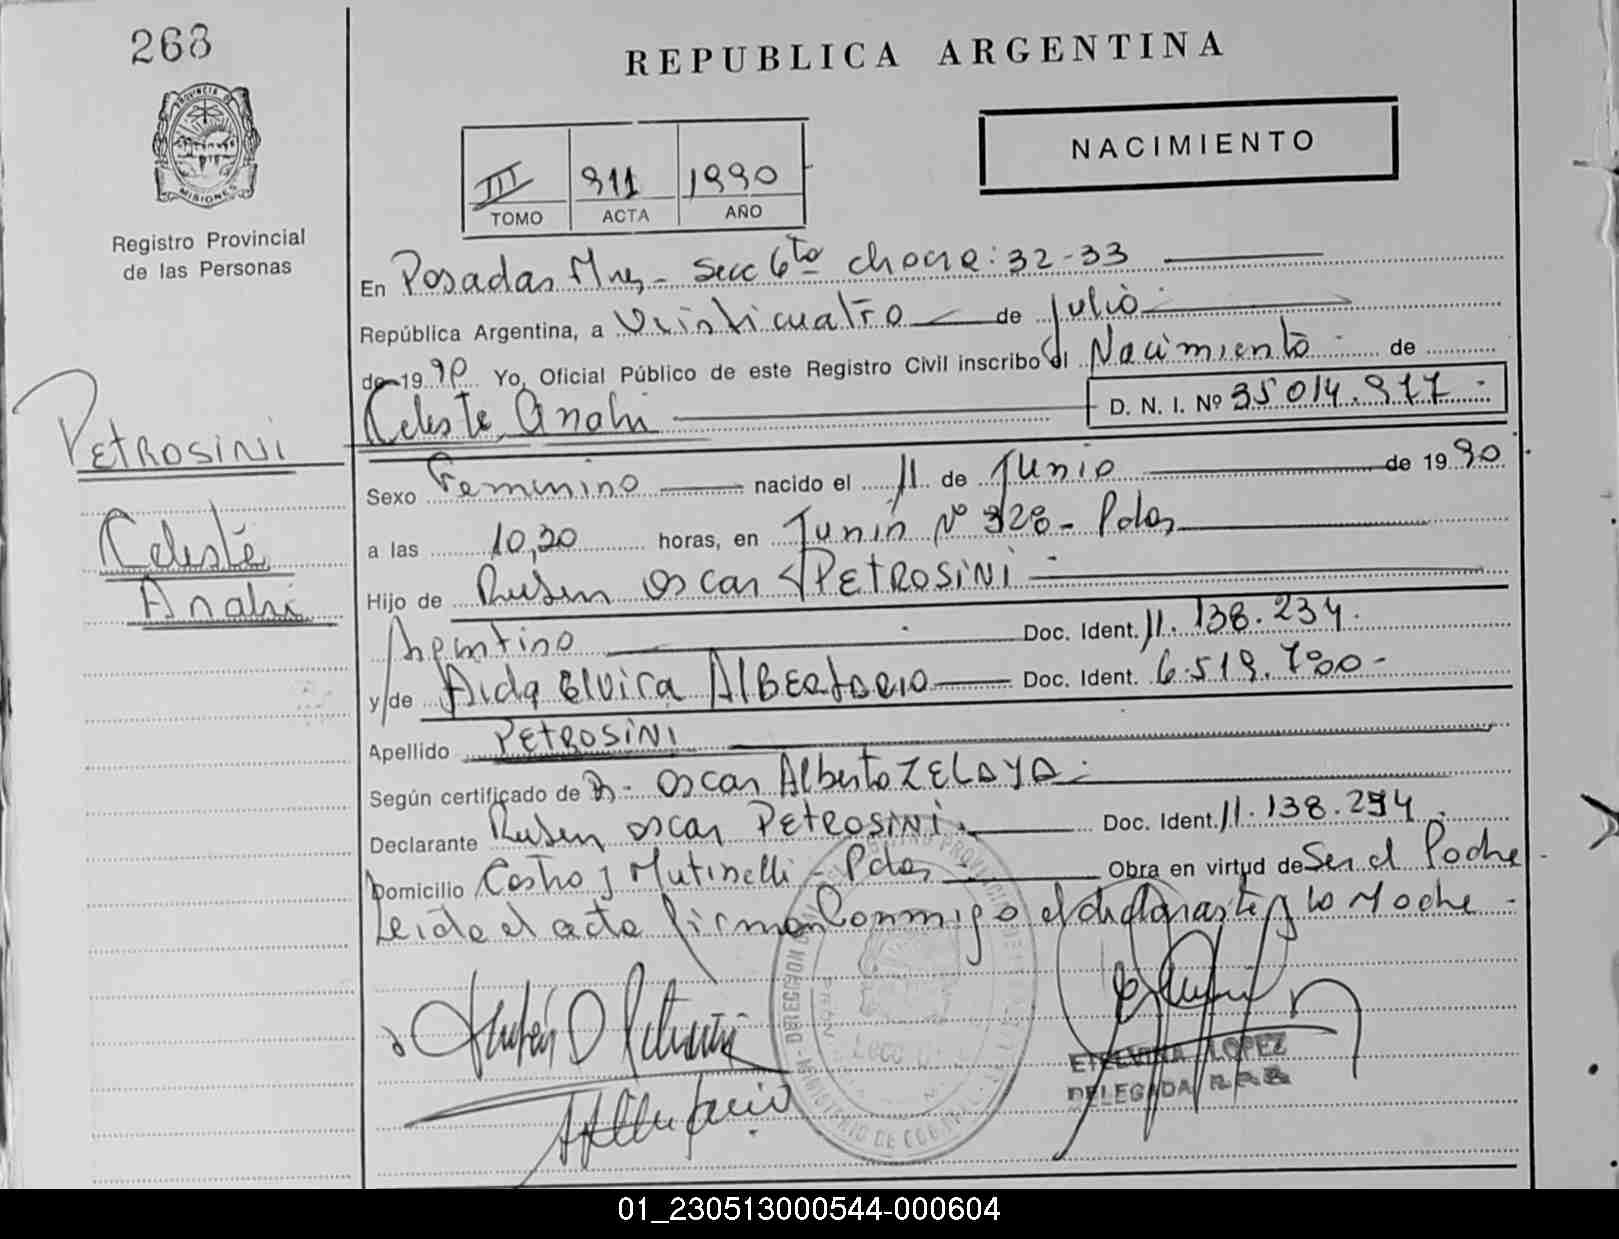 268
REPUBLICA ARGENTINA
PROVINCIA DE
MISIONES
NACIMIENTO
III 911 1990
TOMO ACTA AÑO
Registro Provincial
de las Personas
En Posadas Mnes - Secc 6to chacra: 32-33
República Argentina, a Veinticuatro de Julio
de 1990 Yo, Oficial Público de este Registro Civil inscribo el Nacimiento de
Celeste Anahi D. N. I. Nº 35014.977
PETROSINI
Celeste
Anahi
Sexo Femenino nacido el 11 de Junio de 1990
a las 10,20 horas, en Junin Nº 328 - Pdas
Hijo de Ruben Oscar PETROSINI
Argentino Doc. Ident. 11.138.234.
y de Aida Elvira AlBERtARIO Doc. Ident. 6.519.780-
Apellido PETROSINI
Según certificado de Dr- Oscar Alberto ZELAYA
Declarante Ruben Oscar PETROSINI. Doc. Ident. 11.138.294
Domicilio Castro y Mutinelli - Pdas Obra en virtud de Ser el Padre
Leida el acta firman Conmigo el declarante y la Madre -
ETELVINA LOPEZ
DELEGADA
01_230513000544-000604